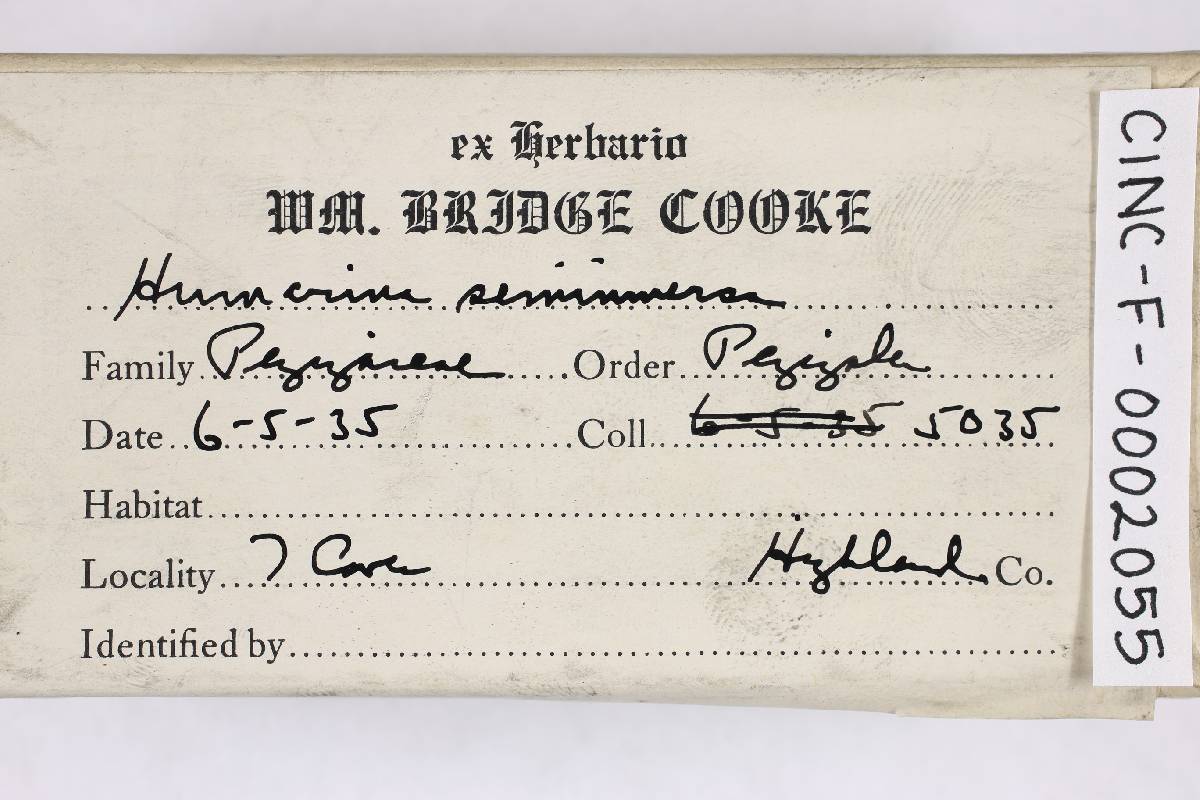 ex Herbario
WM. BRIDGE COOKE
Humarina semiimmersa
Family Pezizaceae Order Pezizales
Date 6-5-35 Coll. 6-5-35 5035
Habitat
Locality 7 Caves Highland Co.
Identified by
CINC-F-0002055